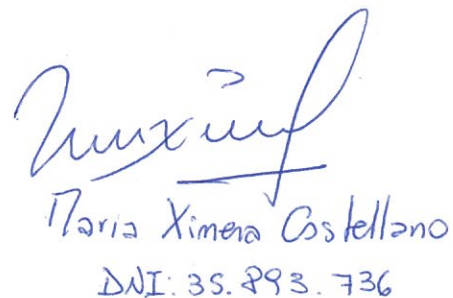 Maria Ximena Costellano
DNI: 35.893.736